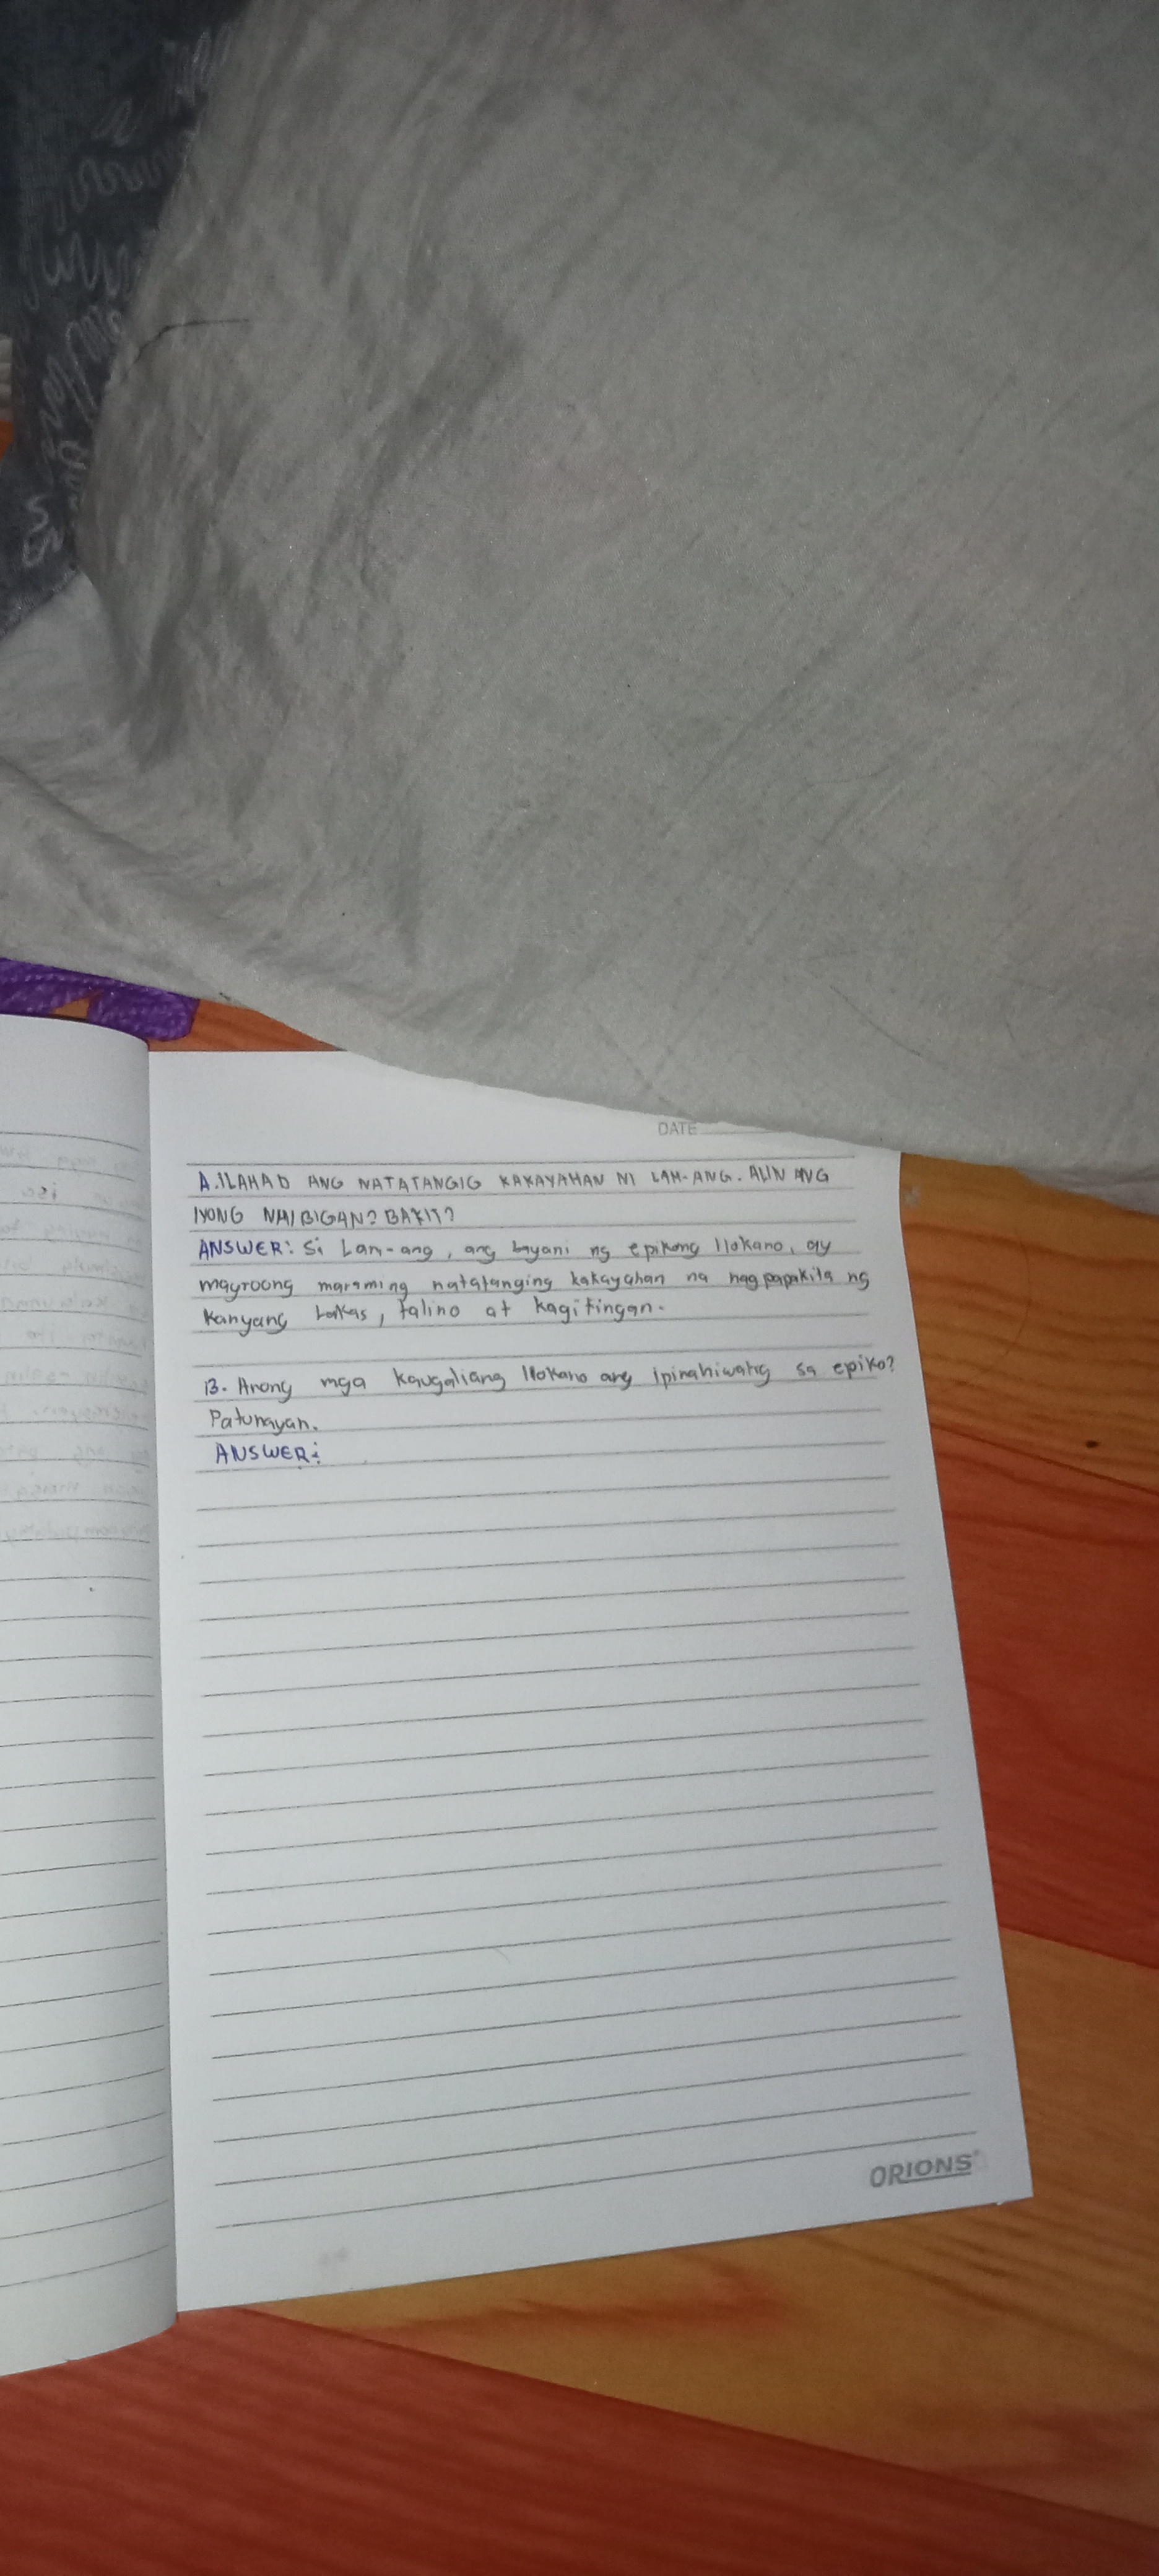 DATE
A. ILAHAD ANG NATATANGIG KAKAYAHAN NI LAM-ANG. ALIN ANG
IYONG NAIBIGAN? BAKIT?
ANSWER: Si Lam-ang, ang bayani ng epikong Ilokano, ay
mayroong maraming natatanging kakayahan na nagpapakita ng
kanyang lakas, talino at kagitingan.
B. Anong mga kaugaliang Ilokano ang ipinahiwatig sa epiko?
Patunayan.
ANSWER:
ORIONS